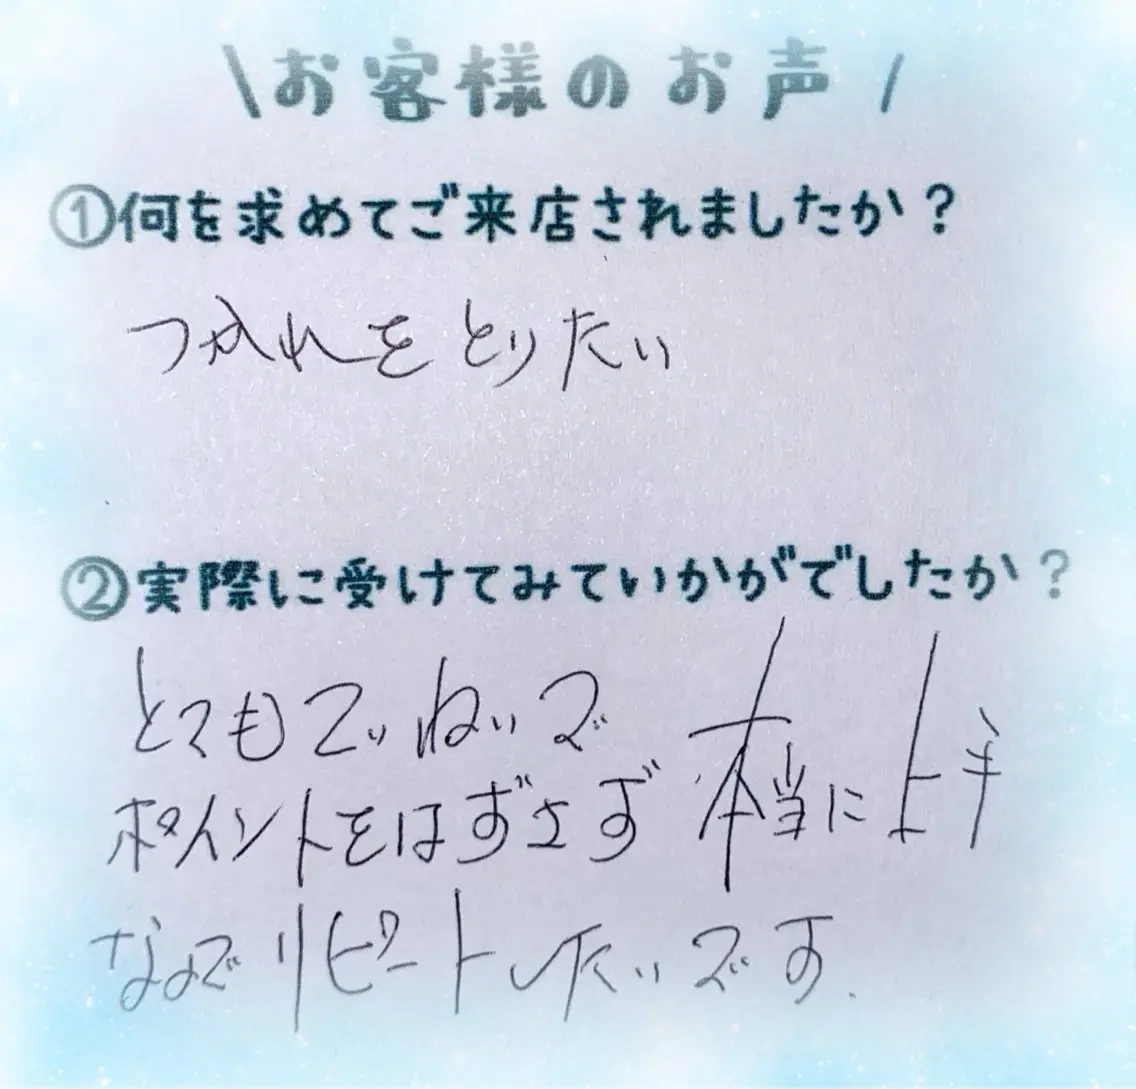 \お客様のお声/
①何を求めてご来店されましたか？
つかれをとりたい
②実際に受けてみていかがでしたか？
とてもていねいで
ポイントをはずさず 本当に上手
なのでリピートしたいです.